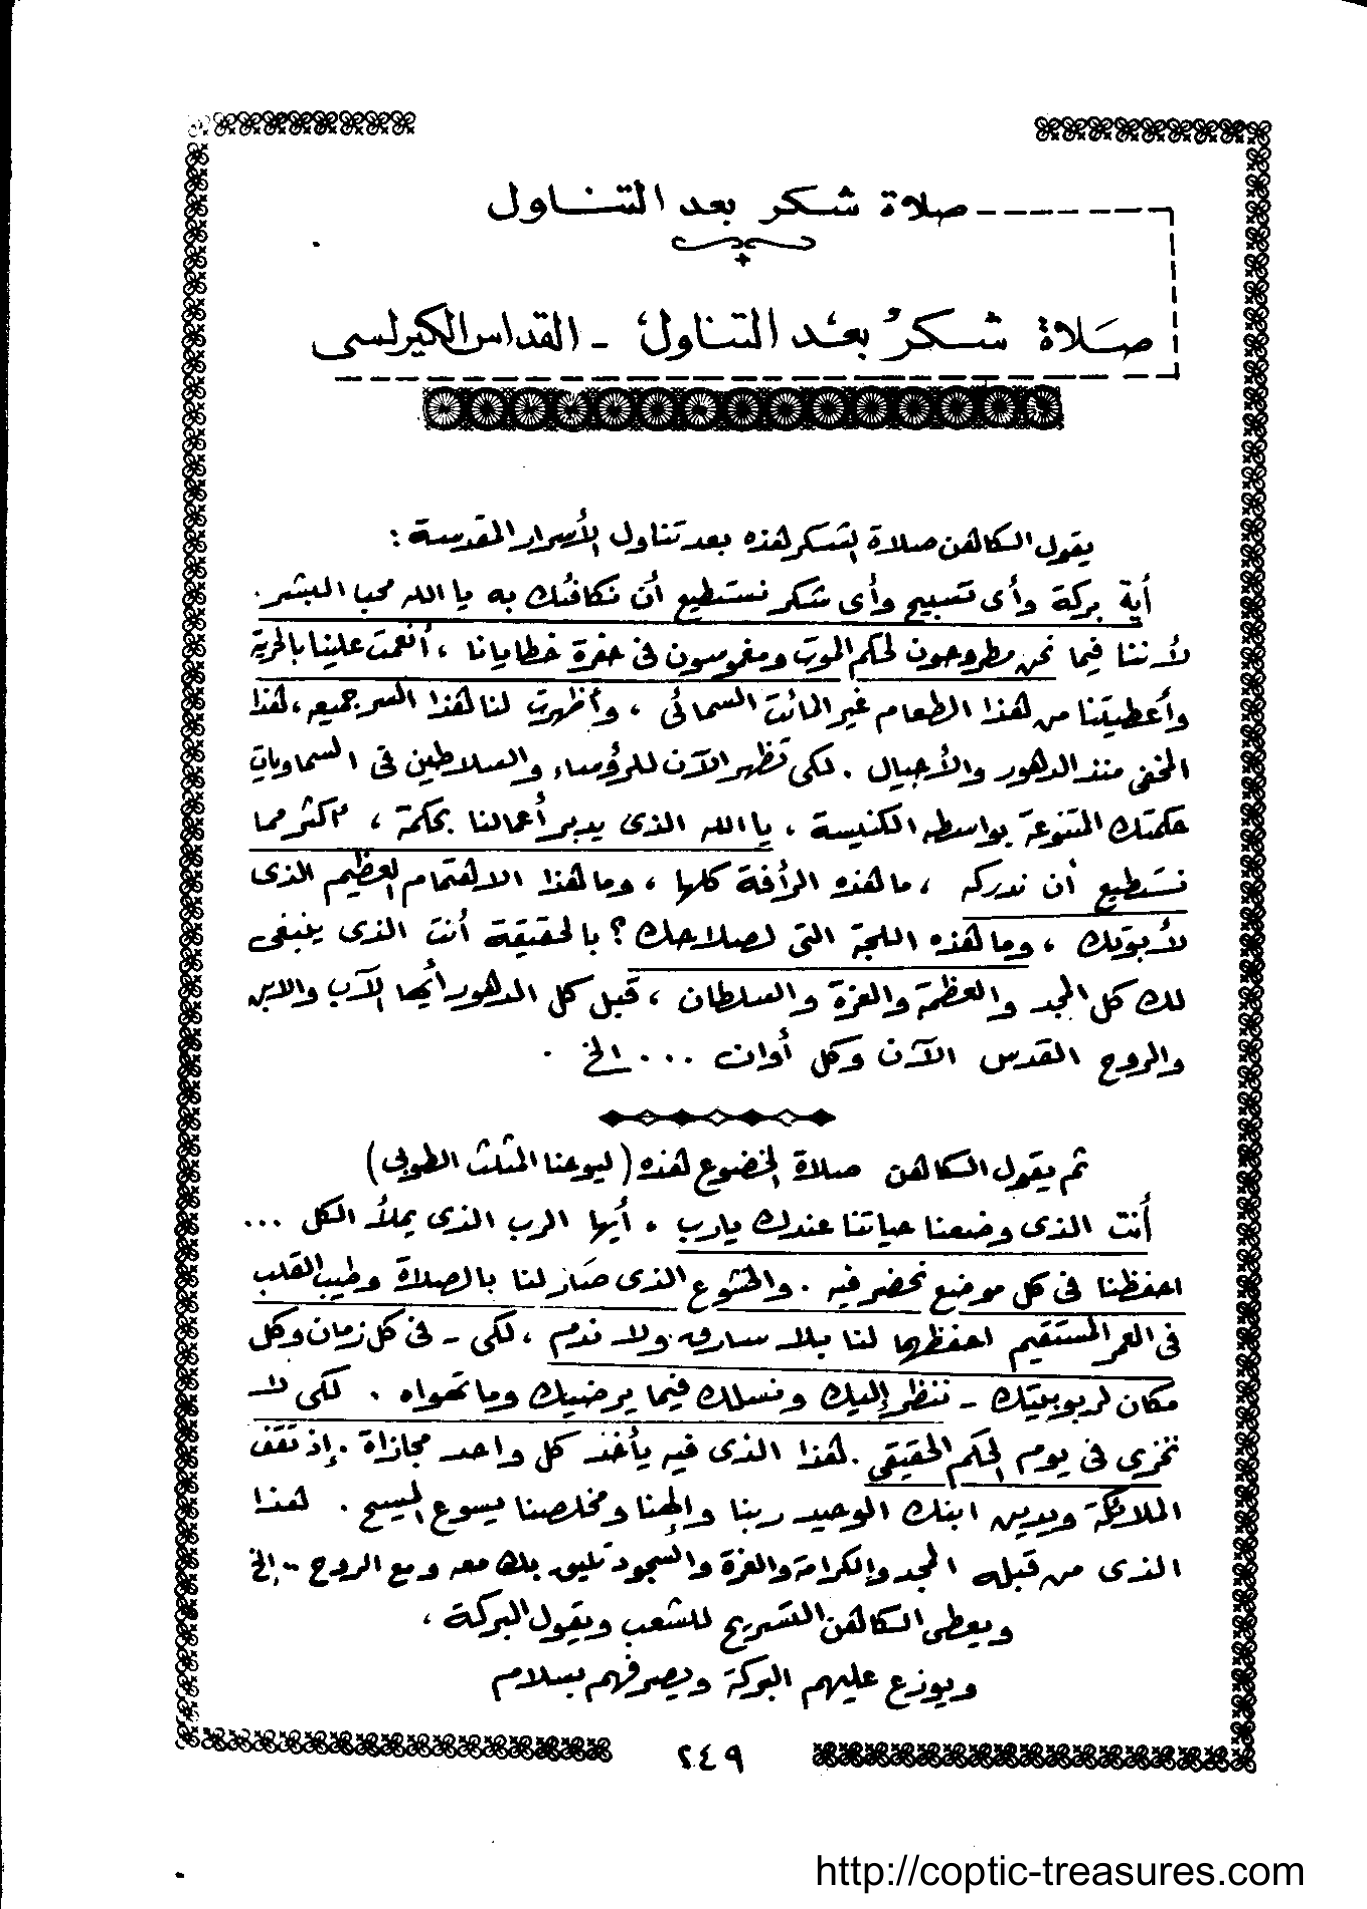 صلاة شكر بعد التناول
صَلاة شكرُ بعْد التناولْ - القداس الكيرلسى
يقول الكاهن صلاة الشكر هذه بعد تناول الأسرار المقدسة :
أية بركة وأى تسبيح وأى شكر نستطيع أن نكافئك به يا الله محب البشر .
لأننا فيما نحن مطروحون لحكم الموت ومغموسون فى حفرة خطايانا ، أنعمت علينا بالحرية
وأعطيتنا من هذا الطعام غير المائت السمائى ، وأظهرت لنا هذا السر جميعه ، هذا
المخفى منذ الدهور والأجيال . لكى تظهر الآن للرؤساء والسلاطين فى السماويات
حكمتك المتنوعة بواسطه الكنيسة ، يا الله الذى يدبر أعمالنا بحكمة ، أكثر مما
نستطيع أن ندركه ، ما هذه الرأفة كلها ، وما هذا الاهتمام العظيم الذى
لأبوتك ، وما هذه اللجة التى لصلاحك ؟ بالحقيقة أنت الذى ينبغى
لك كل المجد والعظمة والعزة والسلطان ، قبل كل الدهور أيها الآب والابن
والروح القدس الآن وكل أوان ... الخ .
ثم يقول الكاهن صلاة الخضوع هذه ( ليوحنا المثلث الطوبى )
أنت الذى وضعنا حياتنا عندك يارب ، أيها الرب الذى يملأ الكل ...
احفظنا فى كل موضع نحضر فيه . والخشوع الذى صَار لنا بالصلاة وطيب القلب
فى العمر المستقيم احفظها لنا بلا سارق ولا ندم ، لكى - فى كل زمان وكل
مكان لربوبيتك - ننظر إليك ونسلك فيما يرضيك وما تهواه . لكى لا
نخزى فى يوم الحكم الحقيقى . هذا الذى فيه يأخذ كل واحد مجازاة . إذ تقف
الملائكة ويدين ابنك الوحيد ربنا وإلهنا ومخلصنا يسوع المسيح . هذا
الذى من قبله المجد والكرامة والعزة والسجود تليق بك معه ومع الروح .. إلخ
ويعطى الكاهن التسريح للشعب ويقول البركة ،
ويوزع عليهم البركة ويصرفهم بسلام
٢٤٩
http://coptic-treasures.com